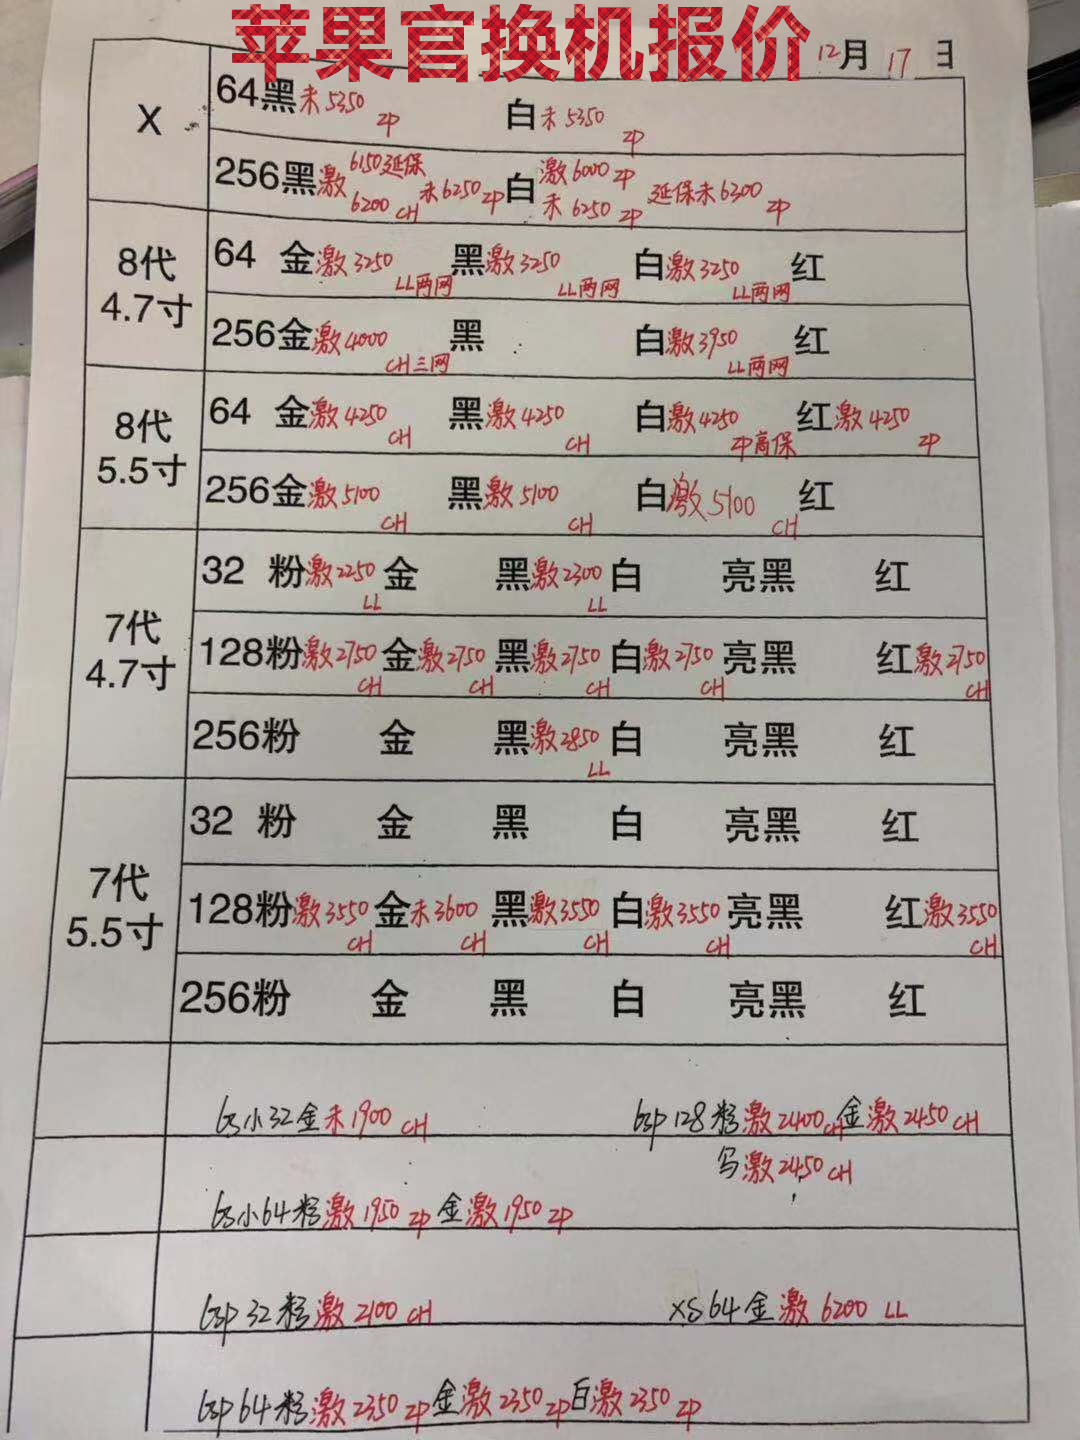 苹果官换机报价
12月 17 日
X
64黑未5350 ZP 白未5350 ZP
256黑激6150延保 6200 CH 未6250 ZP 白激6000 ZP 未6250 ZP 延保未6300 ZP
8代
4.7寸
64 金激3250 LL两网 黑激3250 LL两网 白激3250 LL两网 红
256金激4000 CH三网 黑 白激3950 LL两网 红
8代
5.5寸
64 金激4250 CH 黑激4250 CH 白激4250 ZP高保 红激4250 ZP
256金激5100 CH 黑激5100 CH 白激5100 CH 红
7代
4.7寸
32 粉激2250 LL 金 黑激2300 LL 白 亮黑 红
128粉激2750 CH 金激2750 CH 黑激2750 CH 白激2750 CH 亮黑 红激2750 CH
256粉 金 黑激2850 LL 白 亮黑 红
7代
5.5寸
32 粉 金 黑 白 亮黑 红
128粉激3550 CH 金未3600 CH 黑激3550 CH 白激3550 CH 亮黑 红激3550 CH
256粉 金 黑 白 亮黑 红
6s小32金未1900 CH 6sp128粉激2400 CH 金激2450 CH
激2450 CH
6s小64粉激1950 ZP 金激1950 ZP
6sp32粉激2100 CH XS64金激6200 LL
6sp64粉激2350 ZP 金激2350 ZP 白激2350 ZP